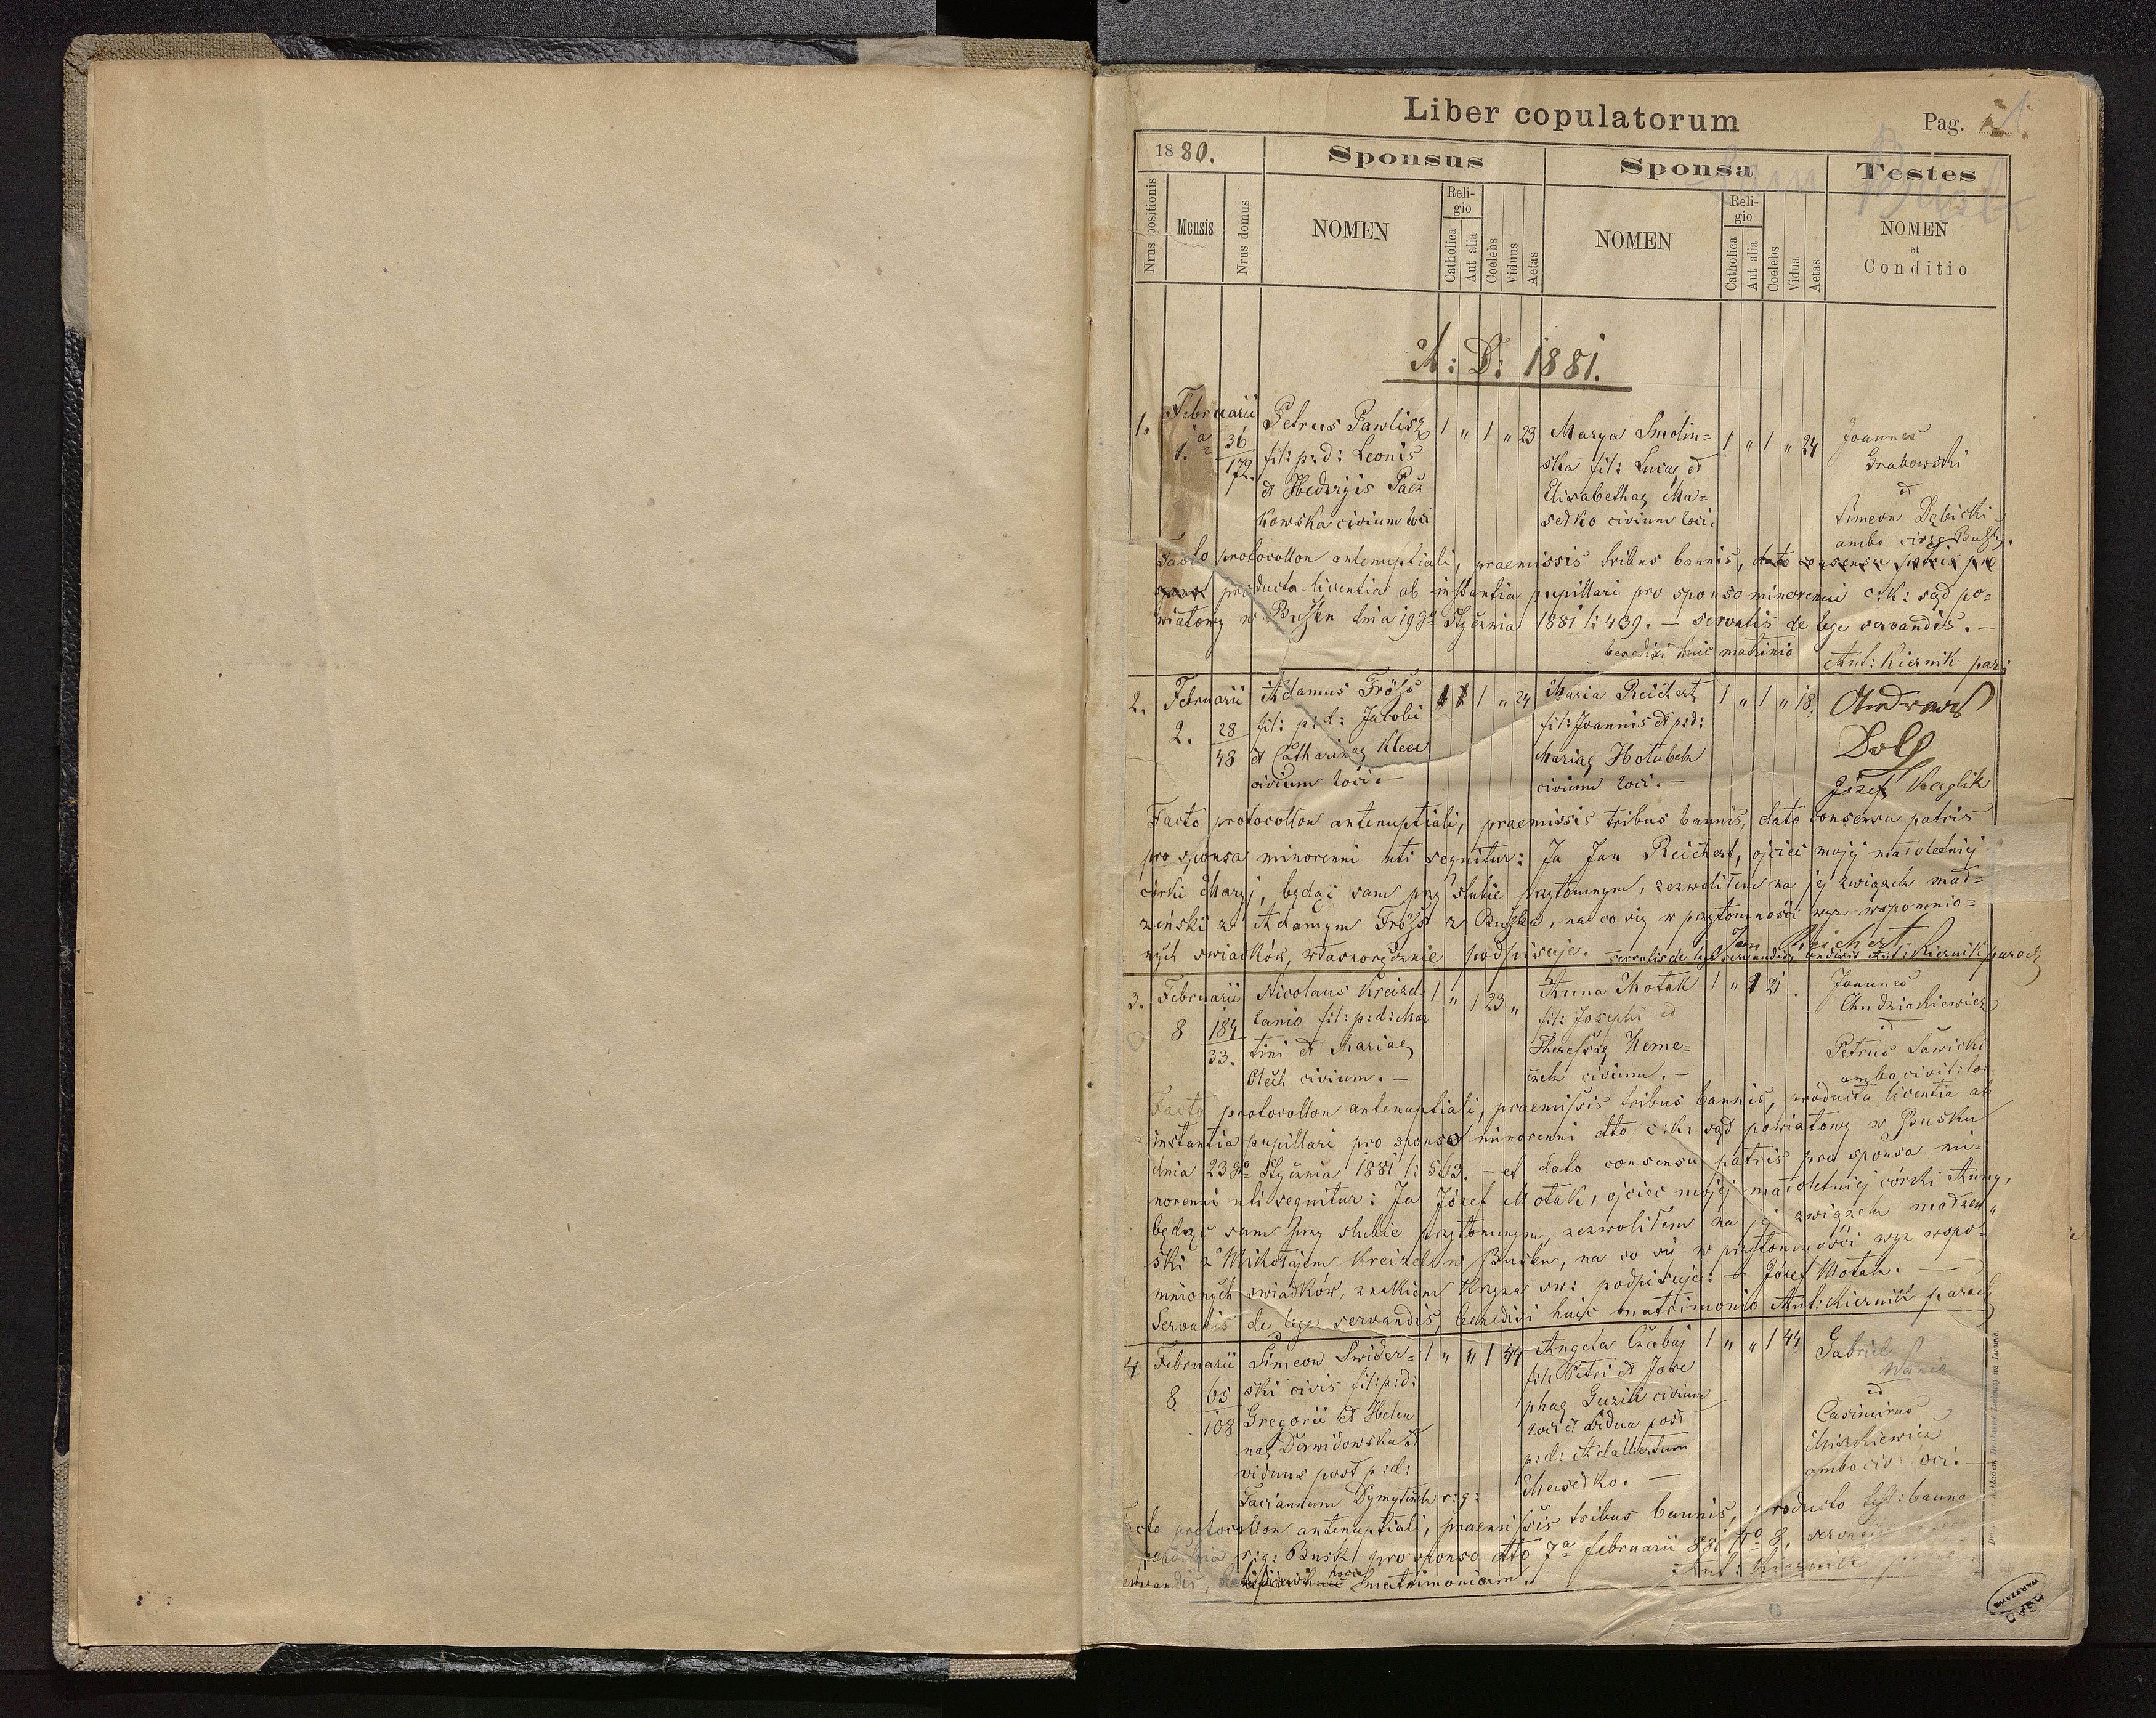 Liber copulatorum
Pag. 1.
1880.
Sponsus
Sponsa
Testes
Nrus positionis
Mensis
Nrus domus
NOMEN
Religio
Catholica
Aut alia
Coelebs
Viduus
Aetas
NOMEN
Religio
Catholica
Aut alia
Coelebs
Vidua
Aetas
NOMEN
et
Conditio
A: D: 1881.
1. Februarii
1.a 36
172.
Petrus Pawlisz
fil: p:d: Leonis
et Hedwigis Pacz
kowska civium loci
1 " 1 " 23
Marya Smolin=
ska fil: Lucae et
Elisabethae Ma=
sedko civium loci.
1 " 1 " 24
Joannes
Grabowski
et
Simeon Dębicki
ambo cives
Facto protocollon antenuptiali, praemissis tribus bannis, dato consensu patris pro
producta licentia ab instantia pupillari pro sponso minorenni c:k: sąd po=
wiatowy w Busku dnia 19go Stycznia 1881 l: 439. — servatis de lege servandis. —
benedixi huic matrimonio
Ant: Kiernik par:
2. Februarii
2. 28
48
Adamus Fröhs
fil: p:d: Jacobi
et Catharinae Kleer
civium loci. —
1 " 24
Maria Reichert
fil: Joannis et p:d:
Mariae Hołubek
civium loci. —
1 " 1 " 18.
Andreas
Dolf
Józef Kaglik
Facto protocollon antenuptiali, praemissis tribus bannis, dato consensu patris
pro sponsa minorenni uti sequitur: Ja Jan Reichert, ojciec mojej małoletniej
córki Maryi, będąc sam przy ślubie przytomnym, zezwoliłem na jej związek mał=
żeński z Adamem Fröhs z Buska, na co się w przytomności wyż wspomnio=
nych swiadków, własnoręcznie podpisuje.
Jan Reichert.
servatis de lege servandis, Ant: Kiernik paroch
3. Februarii
8 184
33.
Nicolaus Kreizel
lanio fil: p:d: Mar
tini et Mariae
Olech civium. —
1 " 1 23 "
Anna Motak
fil: Josephi et
Theressae Neme=
czek civium. —
1 " 1 21.
Joannes
Chudziakiewicz
et
Petrus Sawicki
ambo civit: loci
Facto protocollon antenuptiali, praemissis tribus bannis, producta licentia ab
instantia pupillari pro sponso minorenni dtto c:k: sąd powiatowy w Busku
dnia 23go Stycznia 1881 l: 563. — et dato consensu patris pro sponsa mi=
norenni uti sequitur: Ja Józef Motak, ojciec mojej małoletniej córki Anny,
będąc sam przy slubie przytomnym, zezwoliłem na jej związek małżeń=
ski z Mikołajem Kreizel w Busku, na co się w przytomności wyż wspo=
mnionych swiadków, znakiem krzyża sw: podpisuje: + Józef Motak. —
Servatis de lege servandis, benedixi huic matrimonio Ant: Kiernik paroch
4. Februarii
8 65
108
Simeon Swider=
ski civis fil: p:d:
Gregorii et Helen
nae Derwidowska et
viduus post p:d:
Taciannam Dymytczuk r: g:
1 " " 1 44
Angela Czabaj
fil: Petri et Jose
phae Guzik civium
loci et vidua post
p:d: Adalbertum
Masedko. —
1 " " 1 44
Gabriel
Wanio
et
Casimirus
Miszkiewicz
ambo civ: loci.
Facto protocollon antenuptiali, praemissis tribus bannis, producto test: banno
r:g: Busk pro sponso dtto 7a februarii 881 No 8,
servandis, matrimonium.
Ant: Kiernik